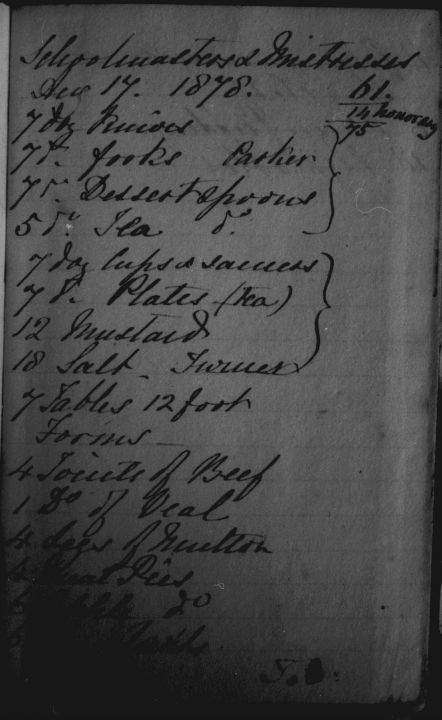 Schoolmasters & Mistresses
Dec 17. 1878. 61.
14 honorary
7 doz Knives 75
7 do. forks Parker
7 do. Dessert spoons
5 do. Tea do.
7 doz Cups & saucers
7 do. Plates (tea)
12 Mustard
18 Salt - Turner
7 Tables 12 foot
Forms
4 Joints of Beef
1 Do of Veal
4 Legs of Mutton
4 Meat Pies
do